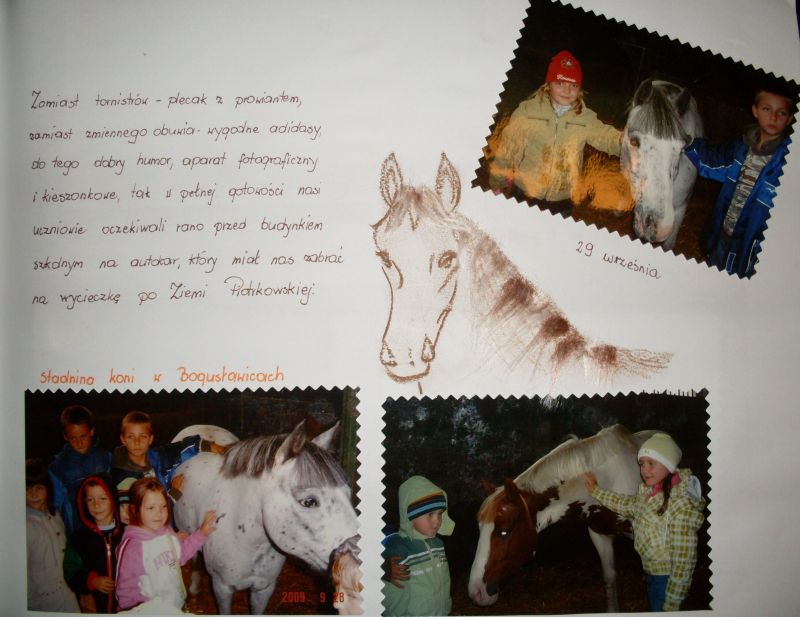 Zamiast tornistrów - plecak z prowiantem,
zamiast zmiennego obuwia - wygodne adidasy,
do tego dobry humor, aparat fotograficzny
i kieszonkowe, tak w pełnej gotowości nasi
uczniowie oczekiwali rano przed budynkiem
szkolnym na autokar, który miał nas zabrać
na wycieczkę po Ziemi Piotrkowskiej.
29 września
Stadnina koni w Bogusławicach
2009 9 28